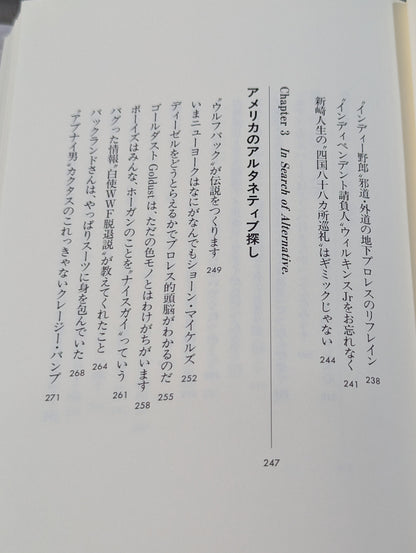 “インディー野郎”邪道・外道の地下プロレスのリフレイン 238
“インディペンデント請負人”ウィルキンスJrをお忘れなく 241
新崎人生の“四国八十八カ所巡礼”はギミックじゃない 244
Chapter 3 In Search of Alternative.
アメリカのアルタネティブ探し 247
“ウルフパック”が伝説をつくります 249
いまニューヨークはなにがなんでもショーン・マイケルズ 252
ディーゼルをどうとらえるかでプロレス的頭脳がわかるのだ 255
ゴールダスト Goldust は、ただの色モノとはわけがちがいます 258
ボーイズはみんな、ホーガンのことを“ナイスガイ”っていう 261
バグった情報“白使WWF脱退説”が教えてくれたこと 264
バックランドさんは、やっぱりスーツに身を包んでいた 268
“アブナイ男”カクタスのこれっきゃないクレージー・バンプ 271